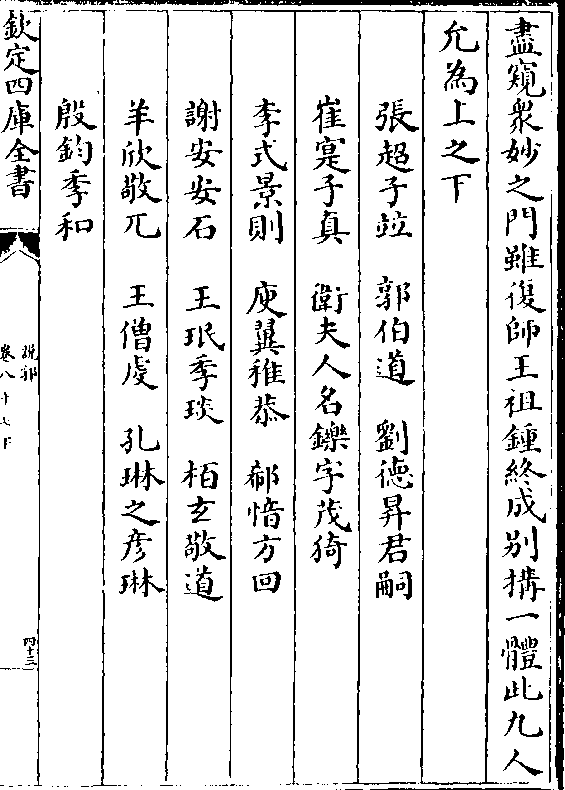 盡窺衆妙之門雖復師王祖鍾終成别搆一體此九人
允為上之下
張超子竝　郭伯道　劉德昇君嗣
崔寔子真　衛夫人名鑠字茂猗
李式景則　庾翼稚恭　郗愔方回
謝安安石　王珉季琰　栢玄敬道
羊欣敬兀　王僧虔　孔琳之彦琳
殷鈞季和
欽定四庫全書
說郛
卷八十七下
四十三